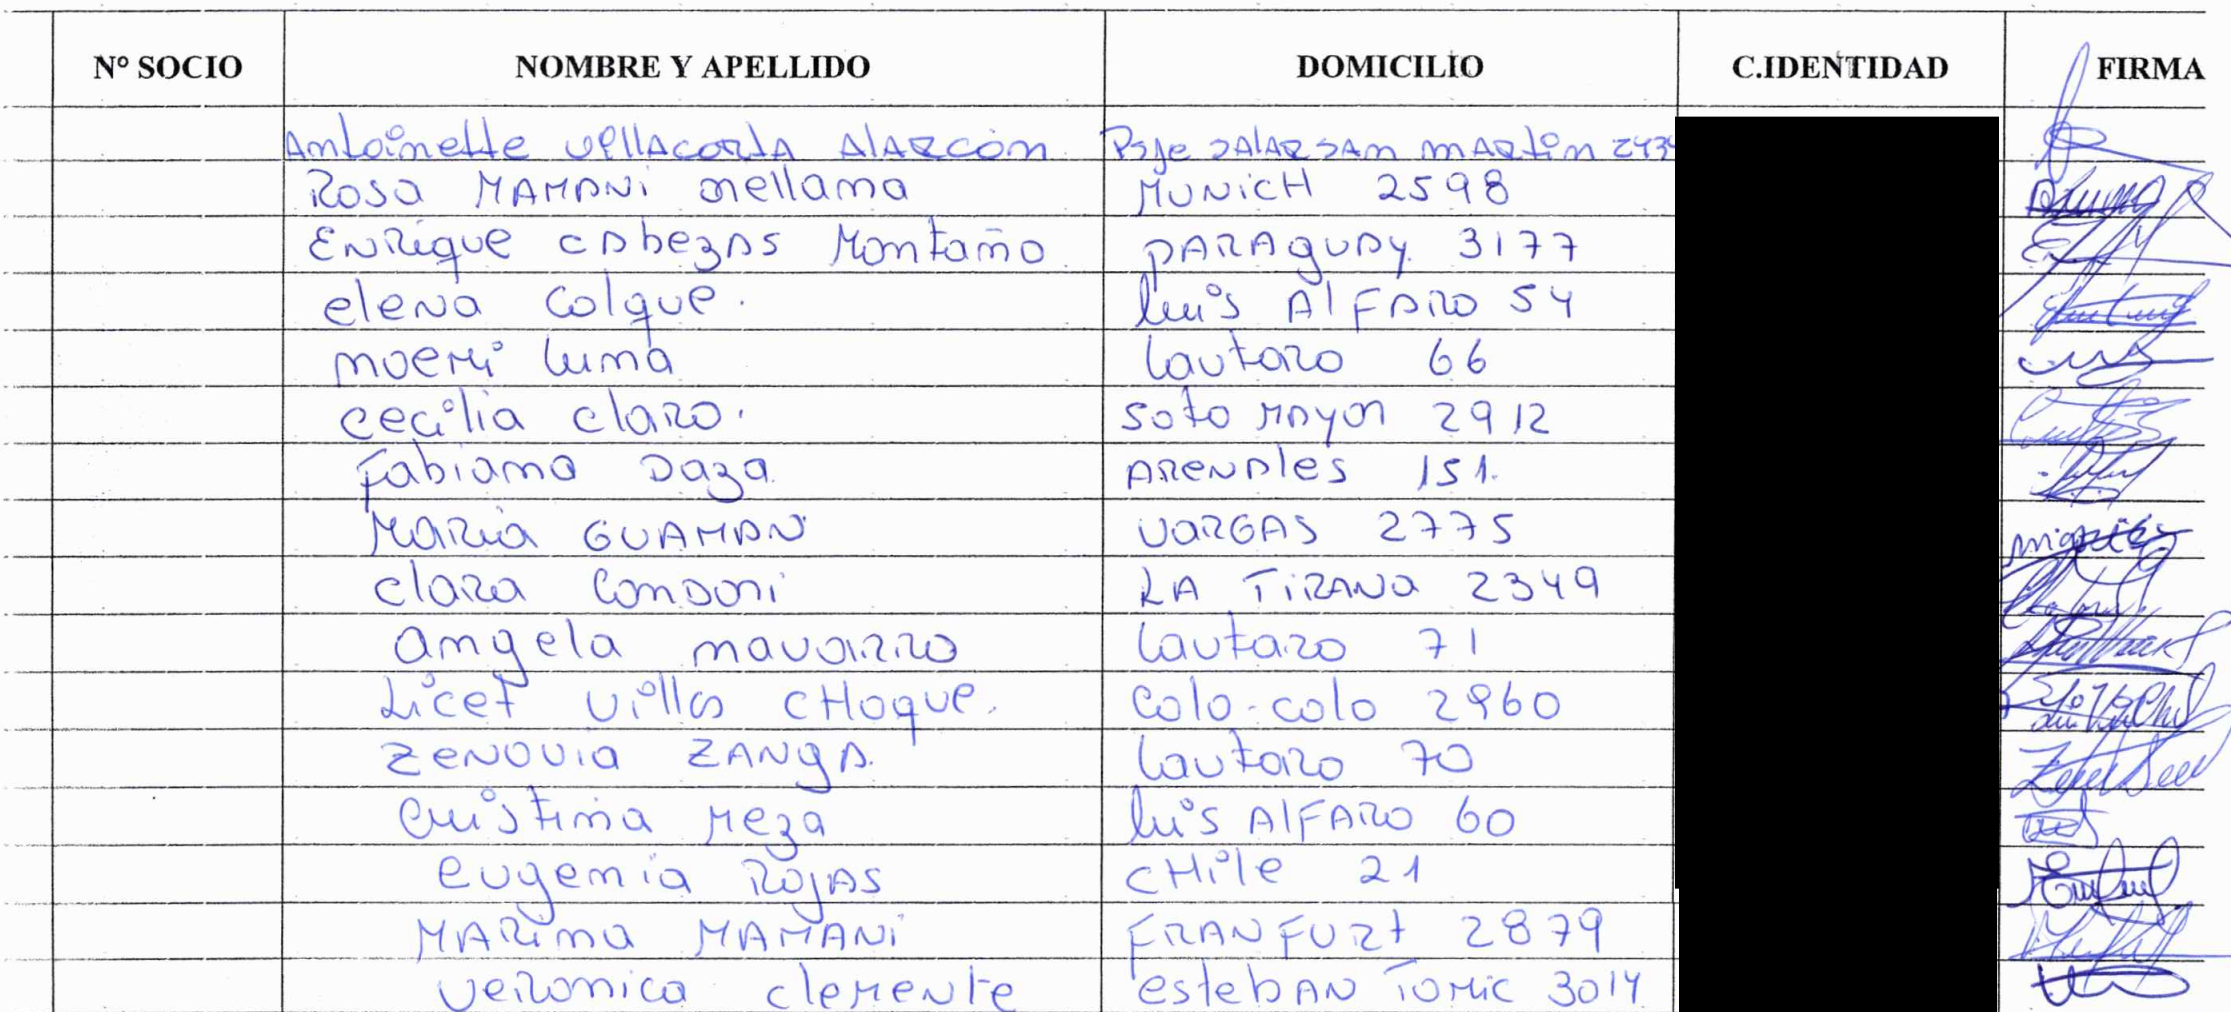 N° SOCIO NOMBRE Y APELLIDO DOMICILIO C.IDENTIDAD FIRMA
Antoinette Vellacorta Alarcón Psje Salar San Martin
Rosa Mamani Orellana Munich 2598
Enrique Cabezas Montaño Paraguay 3177
Elena Colque. Luis Alfaro 54
Noemi Luna Lautaro 66
Cecilia Claro. Soto Mayor 2912
Fabiana Daza Arenales 151.
Maria Guaman Vargas 2775
Clara Condori La Tirana 2349
Angela Navarro Lautaro 71
Licet Villca Choque. Colo-Colo 2960
Zenovia Zanga. Lautaro 70
Cristina Meza Luis Alfaro 60
Eugenia Rojas Chile 21
Marina Mamani Franfurt 2879
Veronica Clemente Esteban Tomic 3014